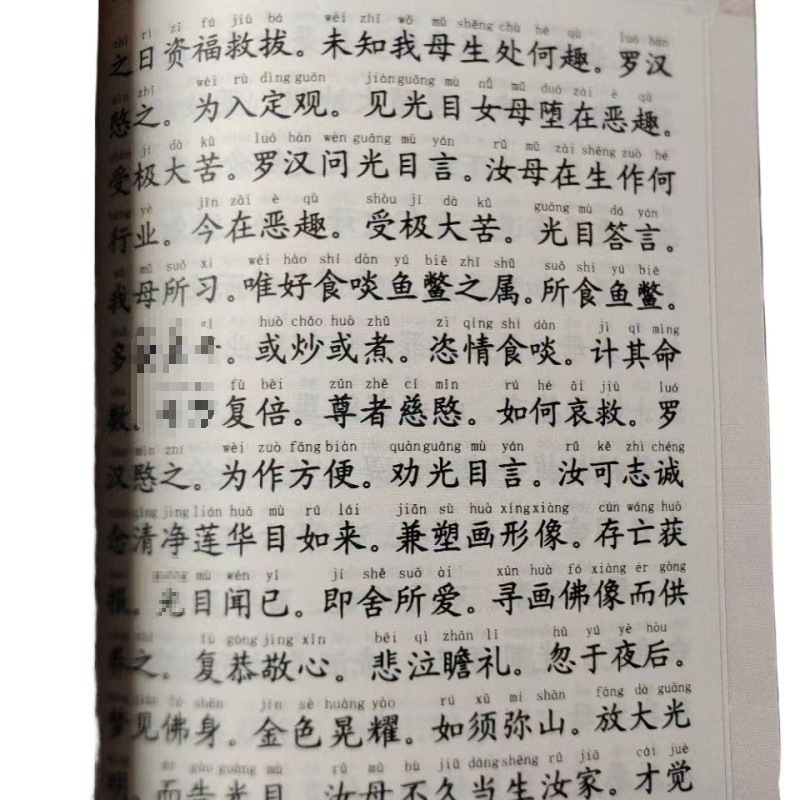 zhī rì zī fú jiù bá wèi zhī wǒ mǔ shēng chù hé qù luó hàn
之日资福救拔。未知我母生处何趣。罗汉
mǐn zhī wèi rù dìng guān jiàn guāng mù nǚ mǔ duò zài è qù
愍之。为入定观。见光目女母堕在恶趣。
jí dà kǔ luó hàn wèn guāng mù yán rǔ mǔ zài shēng zuò hé
受极大苦。罗汉问光目言。汝母在生作何
yè jīn zài è qù shòu jí dà kǔ guāng mù dá yán
行业。今在恶趣。受极大苦。光目答言。
mǔ suǒ xí wéi hào shí dàn yú biē zhī shǔ suǒ shí yú biē
我母所习。唯好食啖鱼鳖之属。所食鱼鳖。
huò chǎo huò zhǔ zì qíng shí dàn jì qí mìng
多 。或炒或煮。恣情食啖。计其命
fù bèi zūn zhě cí mǐn rú hé āi jiù luó
数。 复倍。尊者慈愍。如何哀救。罗
mǐn zhī wèi zuò fāng biàn quàn guāng mù yán rǔ kě zhì chéng
汉愍之。为作方便。劝光目言。汝可志诚
qīng jìng lián huā mù rú lái jiān sù huà xíng xiàng cún wáng huò
念清净莲华目如来。兼塑画形像。存亡获
mù wén yǐ jí shě suǒ ài xún huà fó xiàng ér gòng
报。光目闻已。即舍所爱。寻画佛像而供
zhī fù gōng jìng xīn bēi qì zhān lǐ hū yú yè hòu
养之。复恭敬心。悲泣瞻礼。忽于夜后。
jiàn fó shēn jīn sè huǎng yào rú xū mí shān fàng dà guāng
梦见佛身。金色晃耀。如须弥山。放大光
ér gào guāng mù rǔ mǔ bù jiǔ dāng shēng rǔ jiā cái jué
明。而告光目。汝母不久当生汝家。才觉